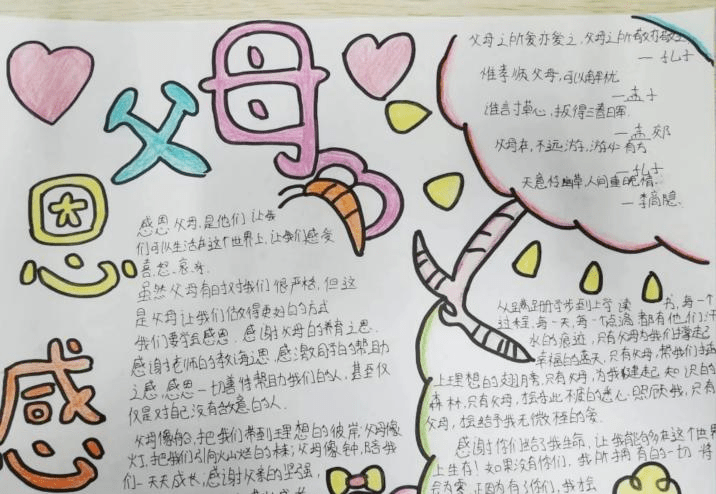 感恩父母
父母之所爱亦爱之,父母之所敬亦敬之
—孔子
惟孝顺父母,可以解忧
—孟子
谁言寸草心,报得三春晖.
—孟郊
父母在,不远游,游必有方
—孔子
天意怜幽草,人间重晚情.
—李商隐.
感恩父母,是他们让我
们可以生活在这个世界上,让我们感受
喜.怒.哀.乐.
虽然父母有时对我们很严格,但这
是父母让我们做得更好的方式
我们要学会感恩.感谢父母的养育之恩.
感谢老师的教诲之恩,感激同学的帮助
之感,感恩一切善待帮助我们的人,甚至仅
仅是对自己没有敌意的人.
父母像船,把我们带到理想的彼岸,父母像
灯,把我们引向火山烂的未来;父母像钟,陪我
们一天天成长,感谢父亲的坚强,
从蹒跚学步到上学读书,每一个
过程,每一天,每一个
都有他们汗
水的痕迹,只有父母为我们撑起
幸福的蓝天,只有父母,帮我们
上理想的翅膀,只有父母,为我
起知识的
森林,只有父母,
不疲的悉心照顾我,只有
父母,
给予我无微
极的爱.
感谢你们给了我生命,让我能够在这个世界
上生存!如果没有你们,我所拥有的一切将
会为零,正因为有了你们,我